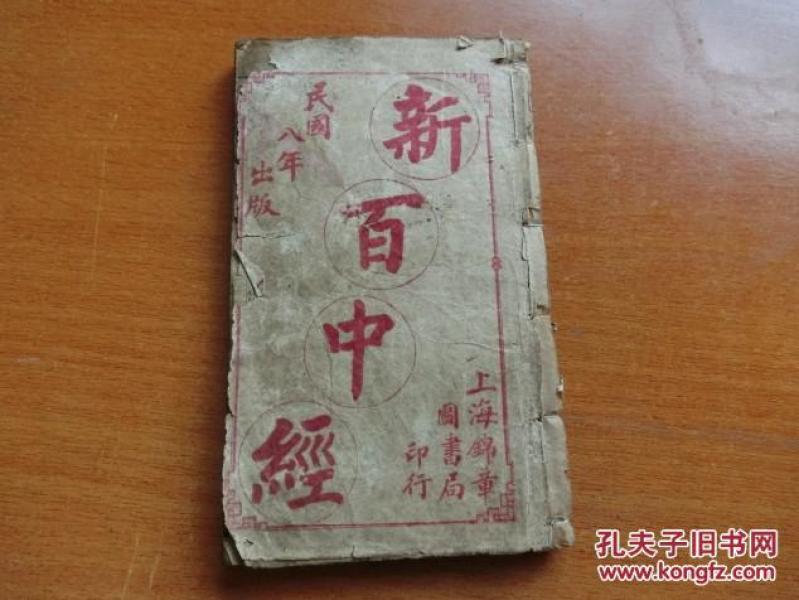 新百中經
民國
八年
出版
上海錦章
圖書局
印行
孔夫子旧书网
www.kongfz.com